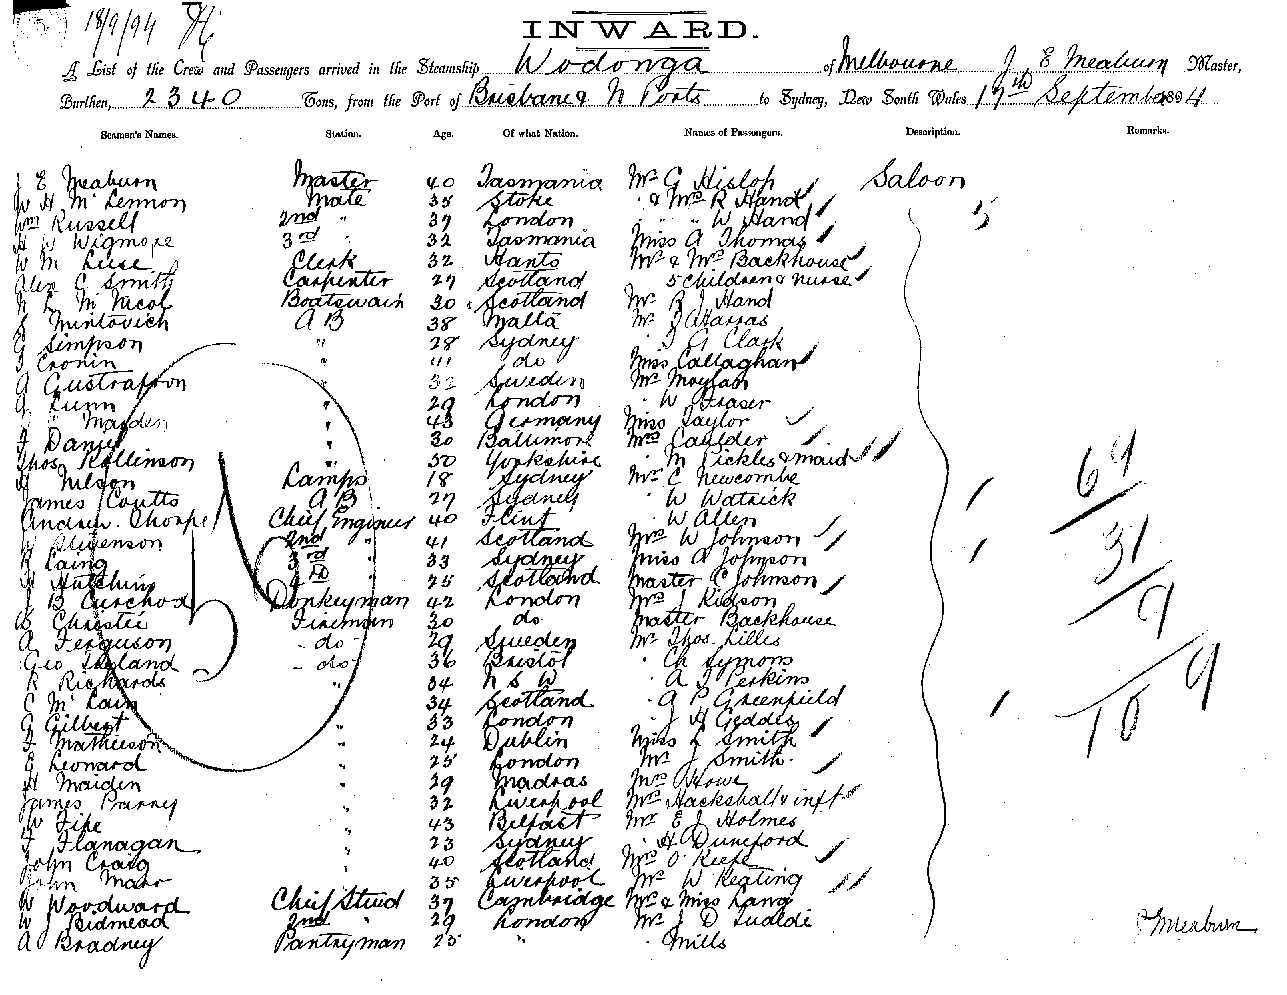 18/9/94
INWARD.
A List of the Crew and Passengers arrived in the Steamship Wodonga of Melbourne J E Meaburn Master,
Burthen, 2340 Tons, from the Port of Brisbane & N Ports to Sydney, New South Wales 17th September 1894
Seamen's Names. Station. Age. Of what Nation. Names of Passengers. Description. Remarks.
J E Meaburn Master 40 Tasmania Mr G Hislop Saloon
W H McLennon Mate 35 Stoke " & Mrs R Hand 5
Wm Russell 2nd " 37 London " " W Hand
H W Wigmore 3rd " 32 Tasmania Miss A Thomas
W M Luse Clerk 32 Hants Mr & Mrs Backhouse
Alex C Smith Carpenter 27 Scotland 5 children & nurse
McNicol Boatswain 30 Scotland Mr R J Hand
Mintovich A B 38 Malta Mr
Simpson " 28 Sydney G Clark
Cronin " do Miss Callaghan
A Gustrafson " 32 Sweden Mr Moylan
Lunn " 29 London " W Fraser
Marden " 43 Germany Miss Taylor
F Daniel " 30 Baltimore Mrs Caulder
Thos Rollinson " 50 Yorkshire " M Pickles & maid 69
Nilson Lamps 18 Sydney Mr C Newcombe
James Coutts A B 27 Sydney " W Watrick
Andrew Thorpe Chief Engineer 40 Flint " W Allen
Stevenson 2nd " 41 Scotland Mrs W Johnson 31
Laing 3rd " 33 Sydney Miss A Johnson
H Hutchins 4th " 25 Scotland Master C Johnson
J B Curchod Donkeyman 42 London Mrs J Kidson 9
Christie Fireman 30 do Master Backhouse
A Ferguson - do - 29 Sweden Mr Thos Lilles
Geo Ireland - do - 36 Bristol " Ch Symons
R Richards " 34 N S W " A J Perkins
C McLain 34 Scotland " A P Greenfield
A Gilbert " 33 London " J H Geddes 109
F Mathieson " 24 Dublin Miss L Smith
E Leonard " 25 London Mr J Smith
H Maiden " 29 Madras Mrs Howe
James Barney " 32 Liverpool Mrs Hackshall & inft
W Fife " 43 Belfast Mr E J Holmes
F Flanagan " 23 Sydney " H Durnford
John Craig " 40 Scotland Mrs O'Keefe
John Marr " 35 Liverpool Mr W Keating
W Woodward Chief Stwd 37 Cambridge Mr & Miss Lang
W Bidmead 2nd " 29 London Mr J D Tualdi
A Bradney Pantryman 25 " " Mills
J E Meaburn
54